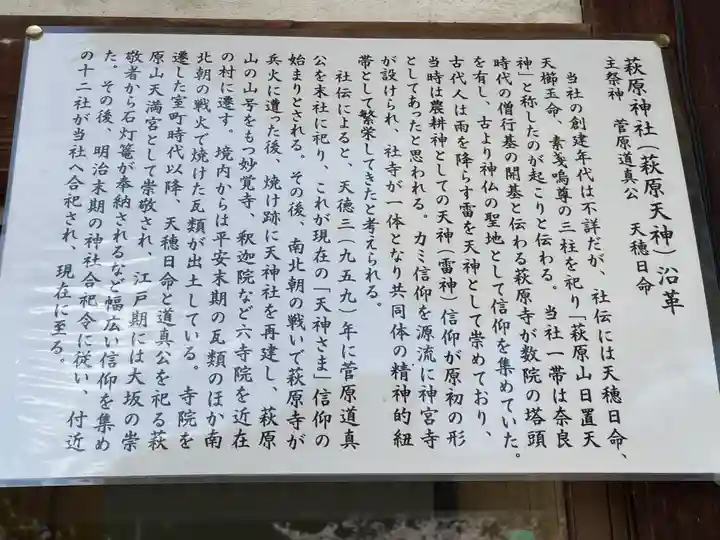 萩原神社(萩原天神)沿革
主祭神　菅原道真公　天穂日命
当社の創建年代は不詳だが、社伝には天穂日命、
天櫛玉命、素戔嗚尊の三柱を祀り「萩原山日置天
神」と称したのが起こりと伝わる。当社一帯は奈良
時代の僧行基の開基と伝わる萩原寺が数院の塔頭
を有し、古より神仏の聖地として信仰を集めていた。
古代人は雨を降らす雷を天神として崇めており、
当時は農耕神としての天神(雷神)信仰が原初の形
としてあったと思われる。カミ信仰を源流に神宮寺
が設けられ、社寺が一体となり共同体の精神的紐
帯として繁栄してきたと考えられる。
社伝によると、天徳三(九五九)年に菅原道真
公を末社に祀り、これが現在の「天神さま」信仰の
始まりとされる。その後、南北朝の戦いで萩原寺が
兵火に遭った後、焼け跡に天神社を再建し、萩原
山の山号をもつ妙覚寺、釈迦院など六寺院を近在
の村に遷す。境内からは平安末期の瓦類のほか南
北朝の戦火で焼けた瓦類が出土している。寺院を
遷した室町時代以降、天穂日命と道真公を祀る萩
原山天満宮として崇敬され、江戸期には大坂の崇
敬者から石灯篭が奉納されるなど幅広い信仰を集め
た。その後、明治末期の神社合祀令に従い、付近
の十二社が当社へ合祀され、現在に至る。